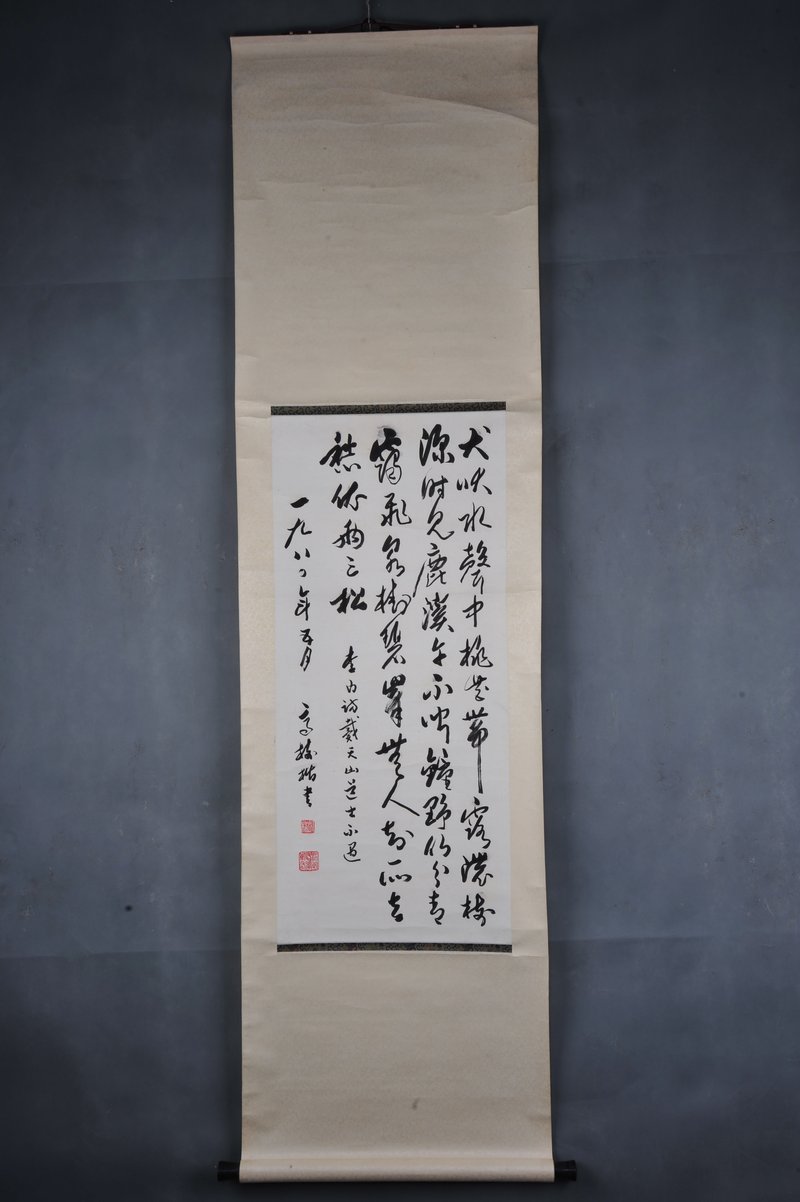 犬吠水聲中桃花帶露濃樹
深时见鹿溪午不闻鐘野竹分青
靄飛泉掛碧峯無人知所去
愁倚两三松
李白訪戴天山道士不遇
一九八〇年五月 高 楷书